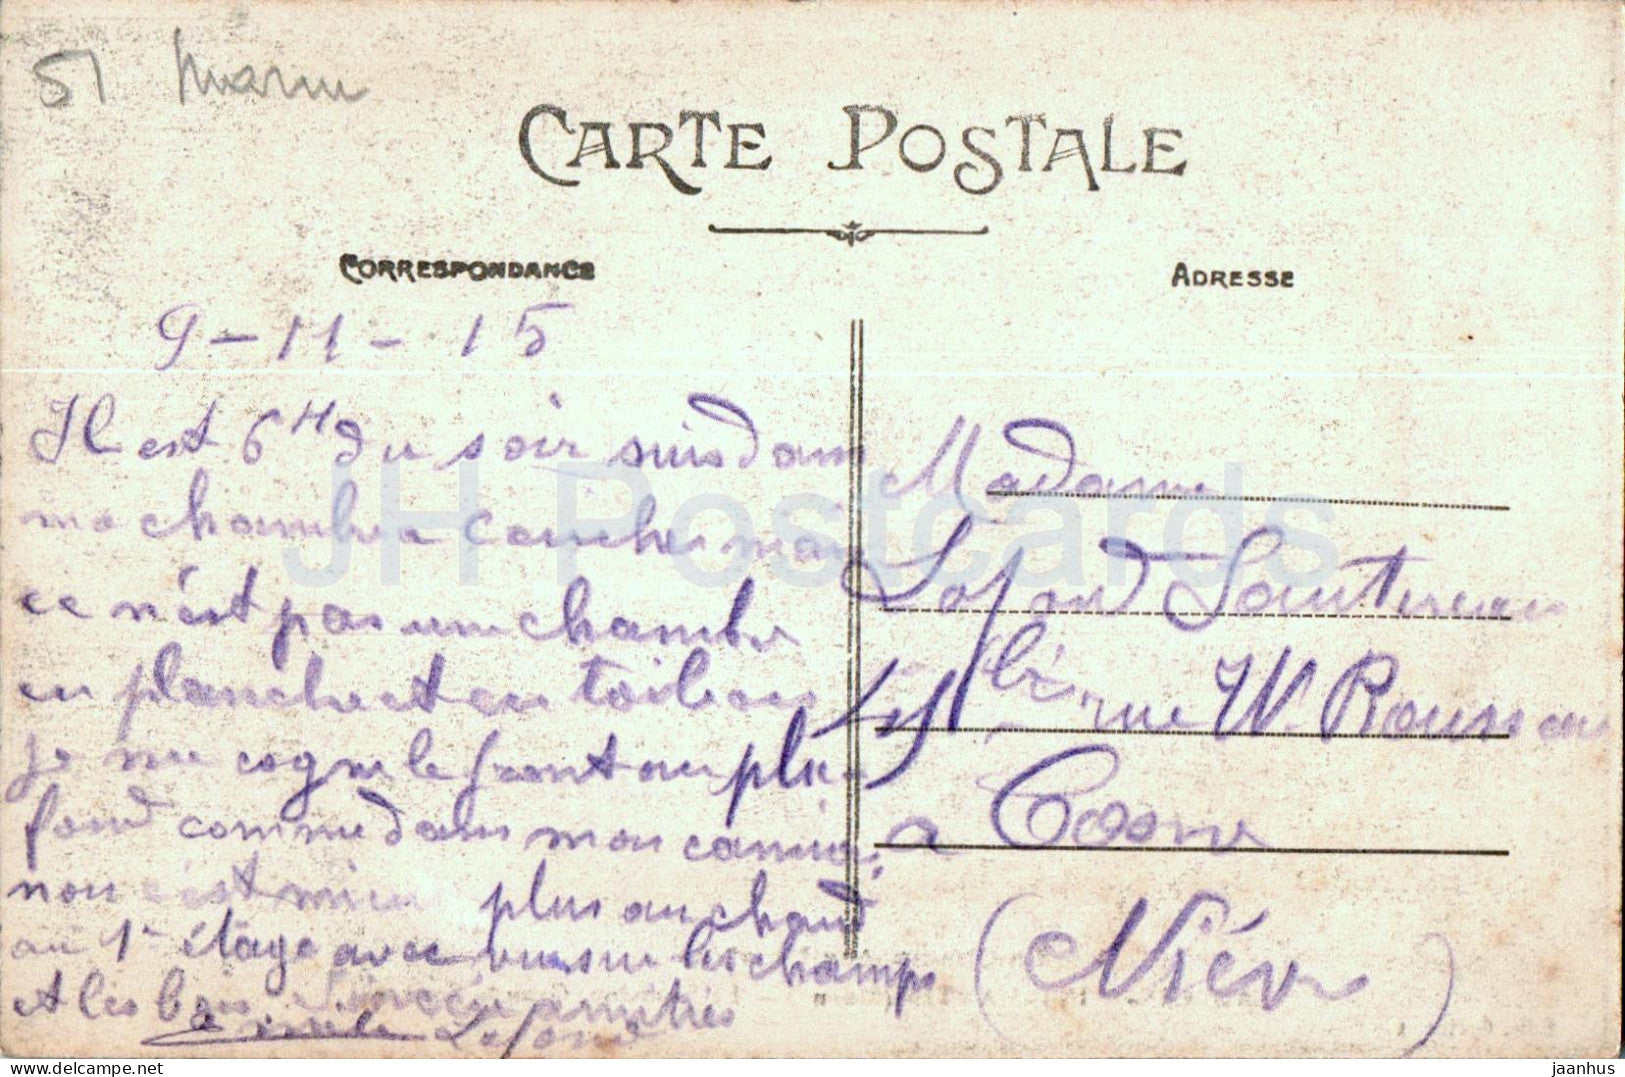 51 Marne
CARTE POSTALE
CORRESPONDANCE
ADRESSE
9-11-15
Il est 6 H du soir suis dans
ma chambre a coucher mais
ce n'est pas une chambre
en planche et en toile ou
je me cogne le front au pla
fond comme dans mon
non c'est mieux plus au chaud
au 1er étage avec vue sur les champs
et les bois amitiés
Emile Lafond
Madame
Lafond Sautereau
rue W. Rousseau
a Cosne
(Nièvre)
JH Postcards
hippostcard.com
jaanhus